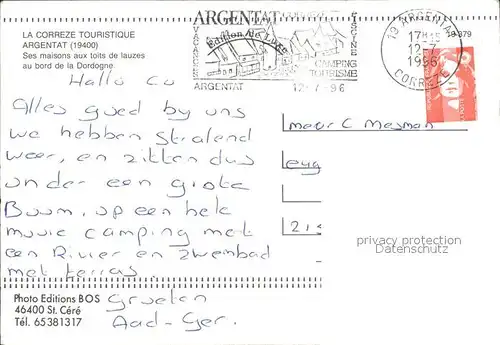 LA CORREZE TOURISTIQUE
ARGENTAT (19400)
Ses maisons aux toits de lauzes
au bord de la Dordogne.
ARGENTAT
Edition de Luxe
CAMPING
TOURISME
ARGENTAT 12-7-96
19 ARGENTAT
17H15
12-7
1996
CORREZE
19-379
Hallo Co
Alles goed by uns
we hebben stralend
weer, en zitten dus
onder een grote
Boom, op een hele
mooie camping met
een Rivier en zwembad
met terras.
Groeten
Aad-Ger.
meer C Meyman
privacy protection
Datenschutz
Photo Editions BOS
46400 St. Céré
Tél. 65381317